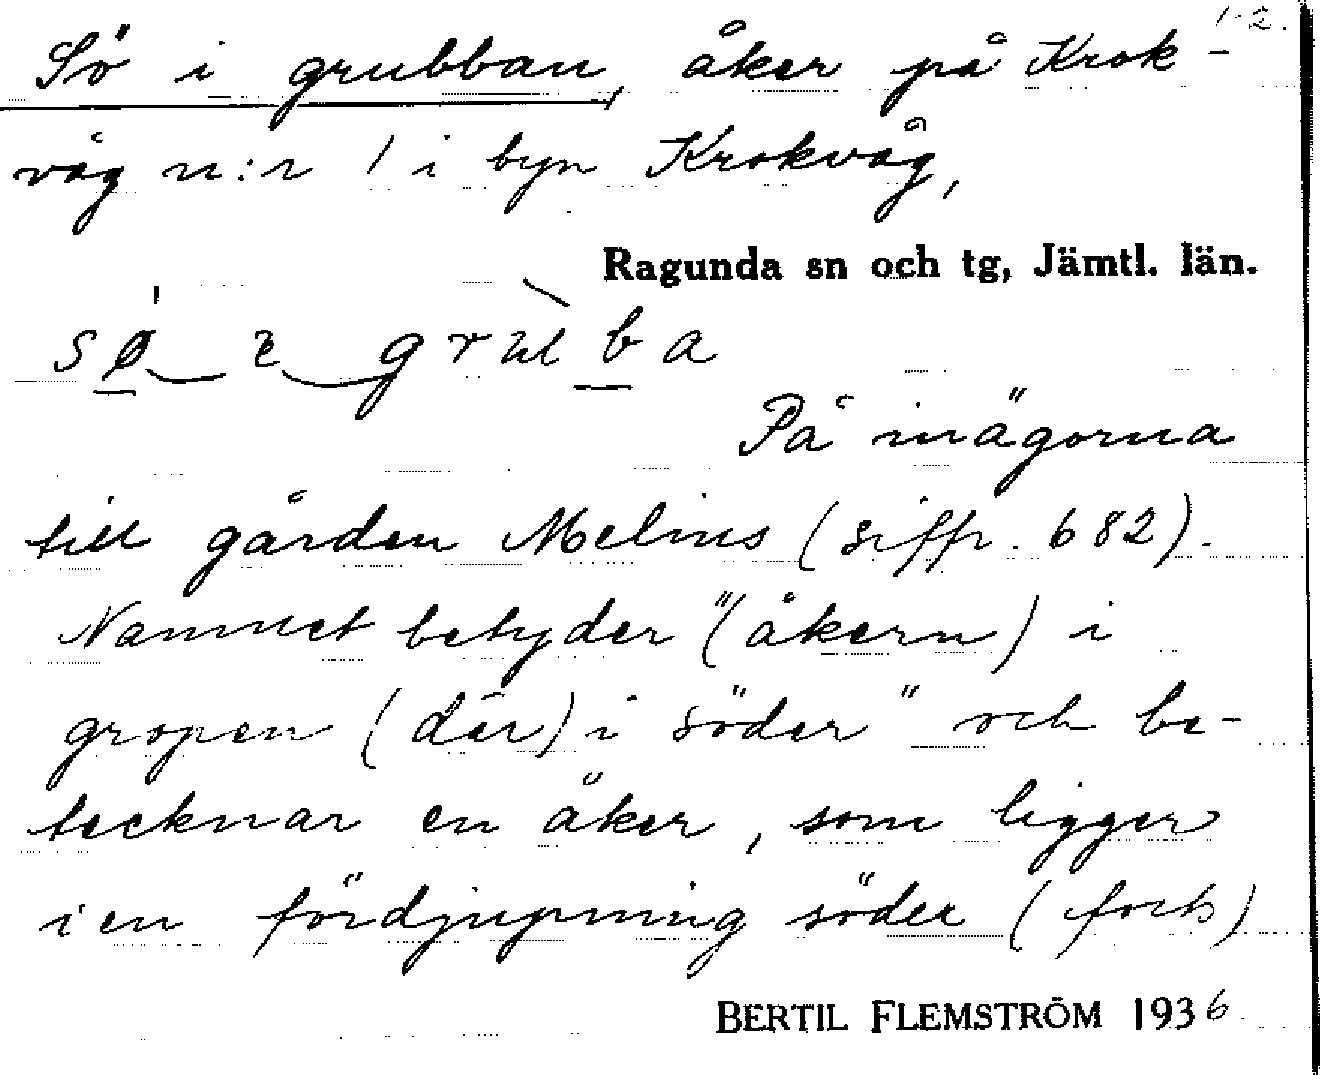 1-2.
Sö i grubban, åker på Krok-
våg n:r 1 i byn Krokvåg,
Ragunda sn och tg, Jämtl. län.
På inägorna
till gården Melins (siffr. 682).
Namnet betyder "(åkern) i
gropen (där) i söder" och be-
tecknar en åker, som ligger
i en fördjupning söder (forts)
BERTIL FLEMSTRÖM 1936